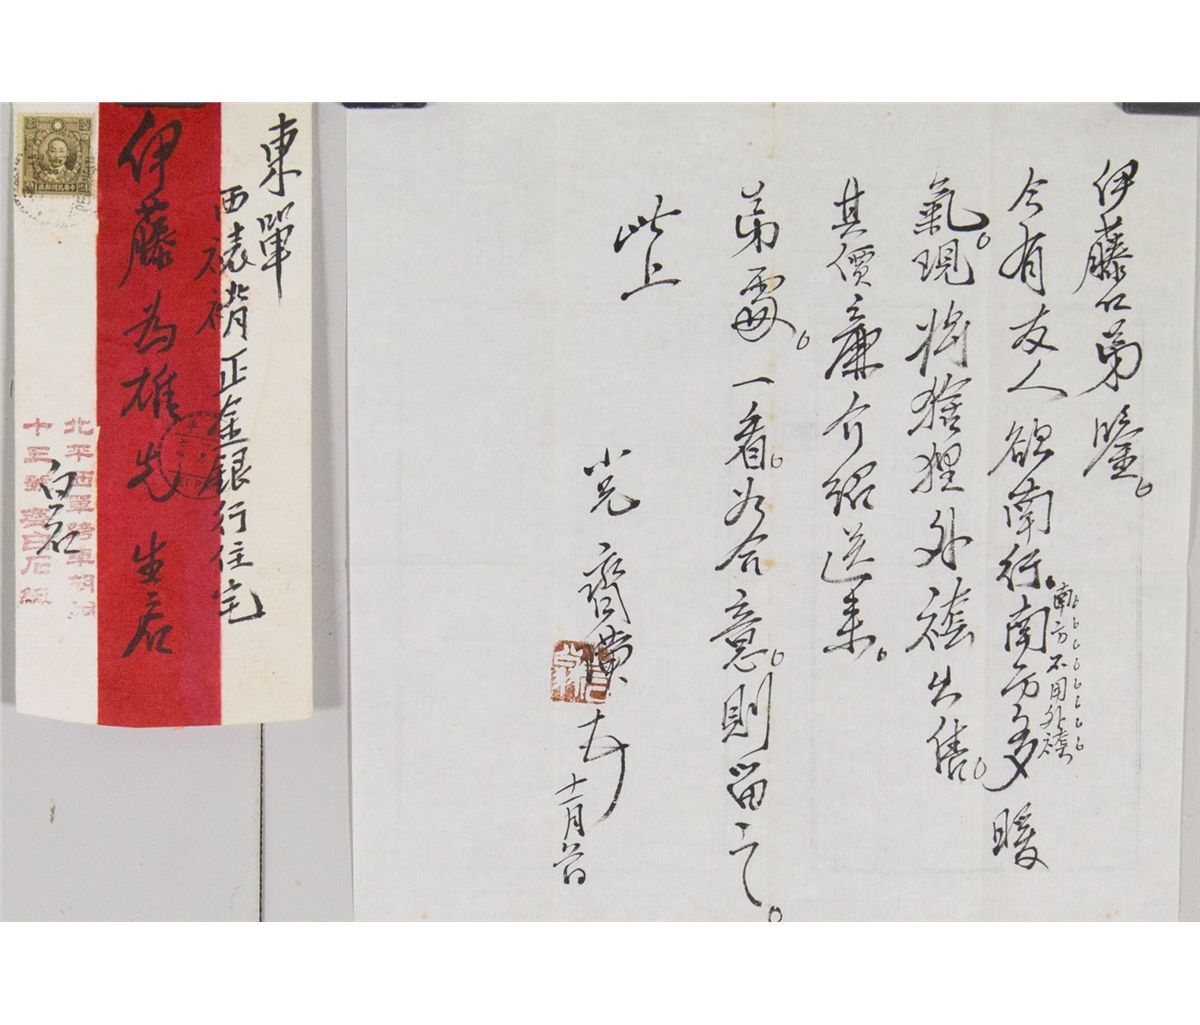 伊藤仁弟鑒。
今有友人欲南行。南方多暖
南方不用外褂
氣。現將猞狸外褂出售。
其價廉介紹送來。
弟處。一看。如合意。則留之。
此上
小兄 齊璜 十二月
東單
西裱褙正金銀行住宅
伊藤為雄先生啟
白石
北平西單跨車胡同
十五號齊白石緘